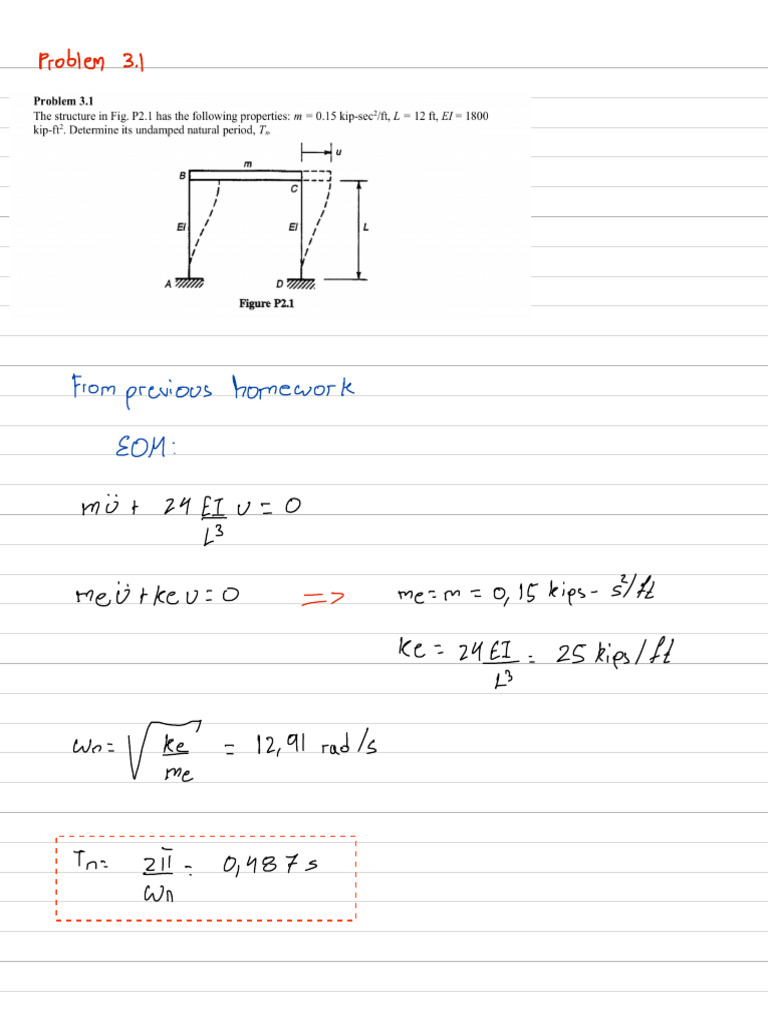 Problem 3.1
Problem 3.1
The structure in Fig. P2.1 has the following properties: m = 0.15 kip-sec²/ft, L = 12 ft, EI = 1800
kip-ft². Determine its undamped natural period, Tₙ.
u
m
B
C
EI
EI
L
A
D
Figure P2.1
From previous homework
EOM:
mü + 24 EI/L³ u = 0
me ü + ke u = 0 => me = m = 0,15 kips - s²/ft
ke = 24 EI/L³ = 25 kips/ft
ωn = √(ke/me) = 12,91 rad/s
Tn = 2π/ωn = 0,487 s